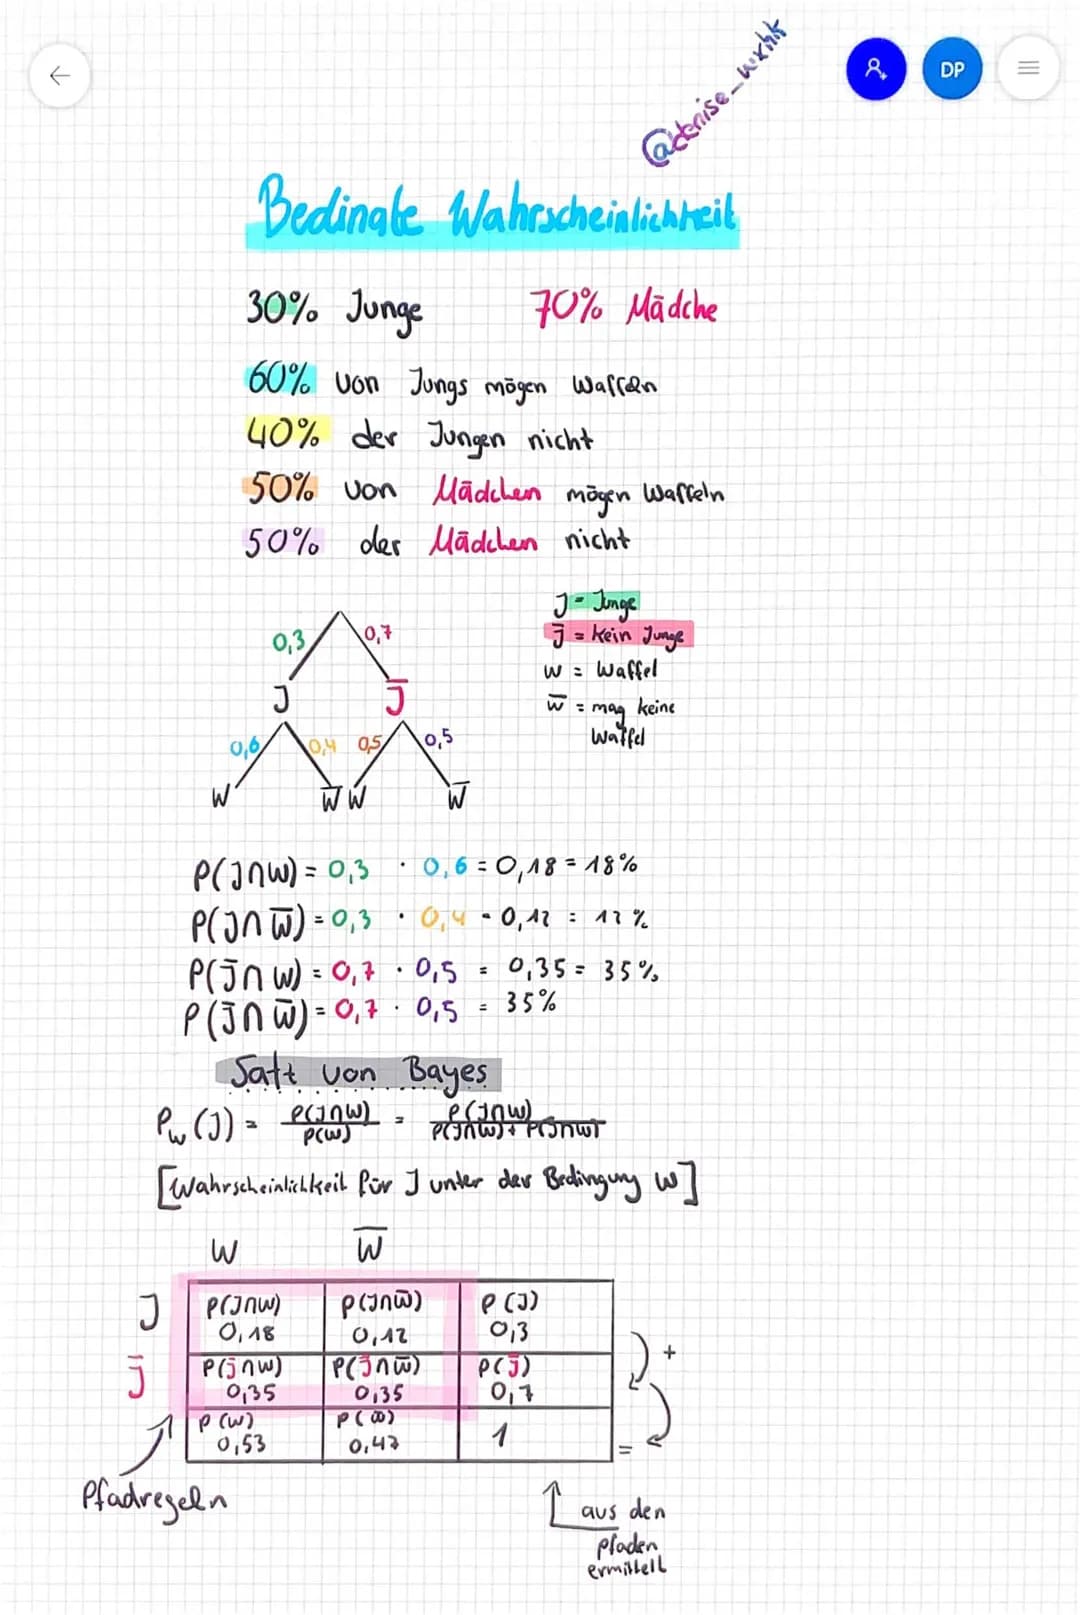 @denise_wxhk
DP
Bedingte Wahrscheinlichkeit
30% Junge 70% Mädche
60% von Jungs mögen Waffeln
40% der Jungen nicht
50% von Mädchen mögen Waffeln
50% der Mädchen nicht
J = Junge
J̅ = kein Junge
W = Waffel
W̅ = mag keine
Waffel
0,3 0,7
J J̅
0,6 0,4 0,5 0,5
W W̅ W W̅
P(J∩W) = 0,3 · 0,6 = 0,18 = 18%
P(J∩W̅) = 0,3 · 0,4 = 0,12 = 12%
P(J̅∩W) = 0,7 · 0,5 = 0,35 = 35%
P(J̅∩W̅) = 0,7 · 0,5 = 35%
Satz von Bayes
P_W(J) = P(J∩W)/P(W) = P(J∩W)/P(J∩W)+P(J̅∩W)
[Wahrscheinlichkeit für J unter der Bedingung W]
W W̅
J P(J∩W) P(J∩W̅) P(J)
0,18 0,12 0,3
J̅ P(J̅∩W) P(J̅∩W̅) P(J̅)
0,35 0,35 0,7
+
P(W) P(W̅) 1
0,53 0,47
=
Pfadregeln
aus den
Pfaden
ermittelt